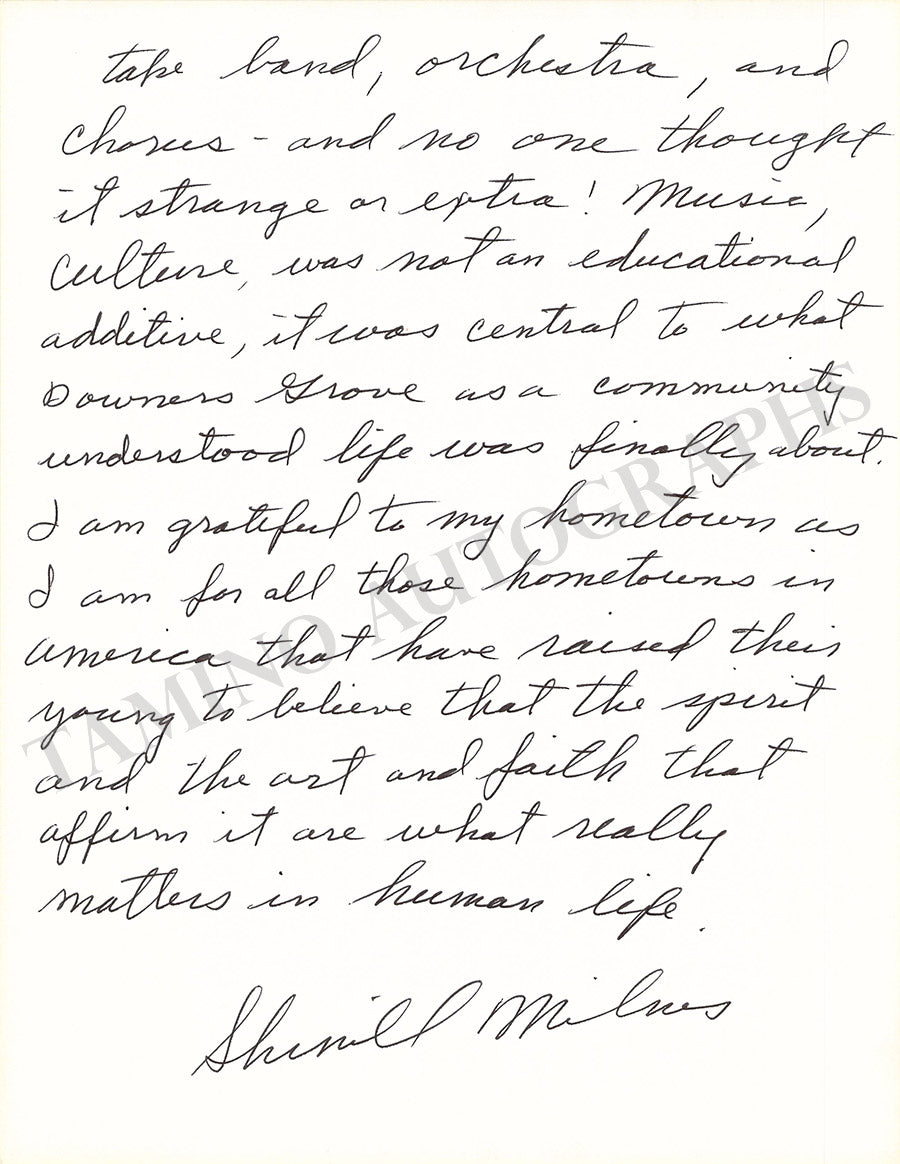 take band, orchestra, and
chorus - and no one thought
it strange or extra! Music,
culture, was not an educational
additive, it was central to what
Downers Grove as a community
understood life was finally about.
I am grateful to my hometown as
I am for all those hometowns in
America that have raised their
young to believe that the spirit
and the art and faith that
affirm it are what really
matters in human life.
Sherrill Milnes
TAMINO AUTOGRAPHS